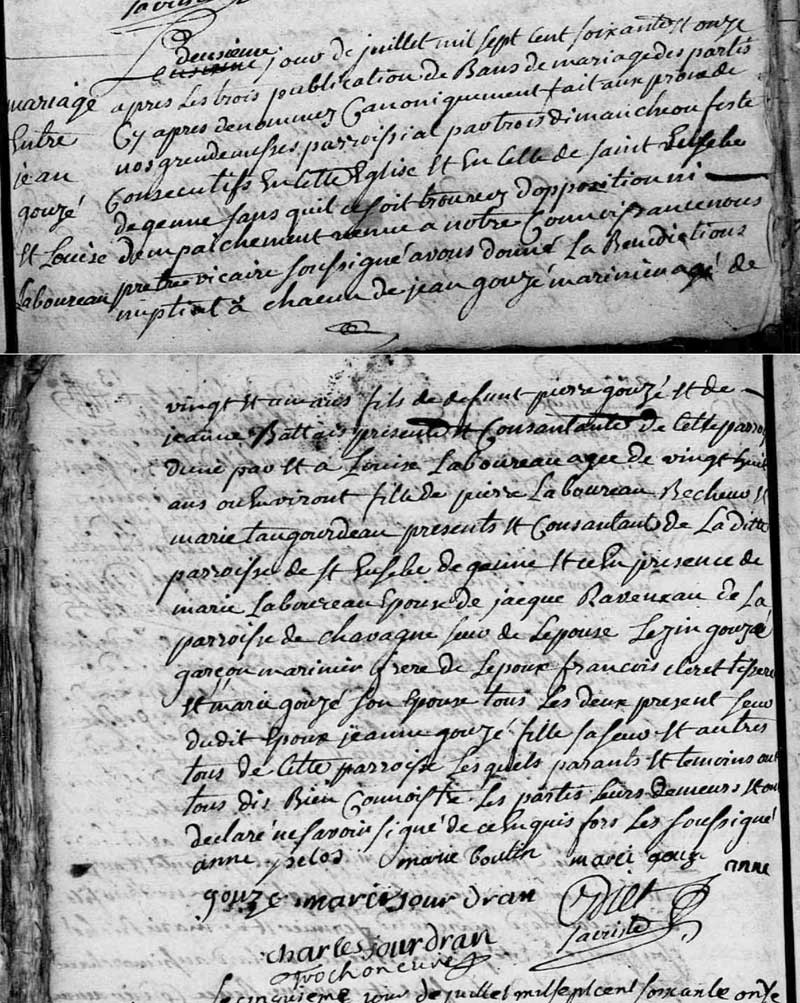 Lacriste
Le deusieme jour de juillet mil sept cent soixante et onze
mariage apres Les trois publication de Bans de mariage des partis
Entre Cy apres denommez Canoniquement fait aux prone de
jean nos grande messes parroissial par trois dimanche ou feste
gouzé Consecutifs En cette Eglise Et En Celle de saint Eusebe
de genne sans quil ce soit trouvez d'opposition ni
Et Louise dempaichement venue a notre Connoissance nous
Laboureau pretre vicaire soussigné avons donné La Benedictions
nuptial à chacun de jean gouzé marinier agé de
vingt et un ans fils de defunt pierre gouzé Et de
jeanne Battais presente Et Consantante de Cette parroi
dune par Et a Louise Laboureau agee de vingt huit
ans ou Environt fille de pierre Laboureau Becheur Et
marie taugourdeau presents Et Consantant de La ditte
parroisse de st Eusebe de genne Et ce En presence de
marie Laboureau Epouse de jacque Raveneau de La
parroisse de chavagne seur de Lepouse Lezin gouzé
garçon marinier frere de Lepoux françois cleret
Et marie gouzé son Epouse tous Les deux present seur
dudit Epoux jeanne gouzé fille sa seur Et autres
tous de Cette parroisse Lesquels parants Et temoins ont
tous dis Bien Connoistre Les partis Leurs demeurs Et ont
declaré ne savoir signé de ce Enquis fors Les soussigné
anne pelos marie boutin marei gouze anne
gouze marie jour dran
Lacriste
charles jourdran
Le cinquieme jour de juillet mil sept cent soixante onze